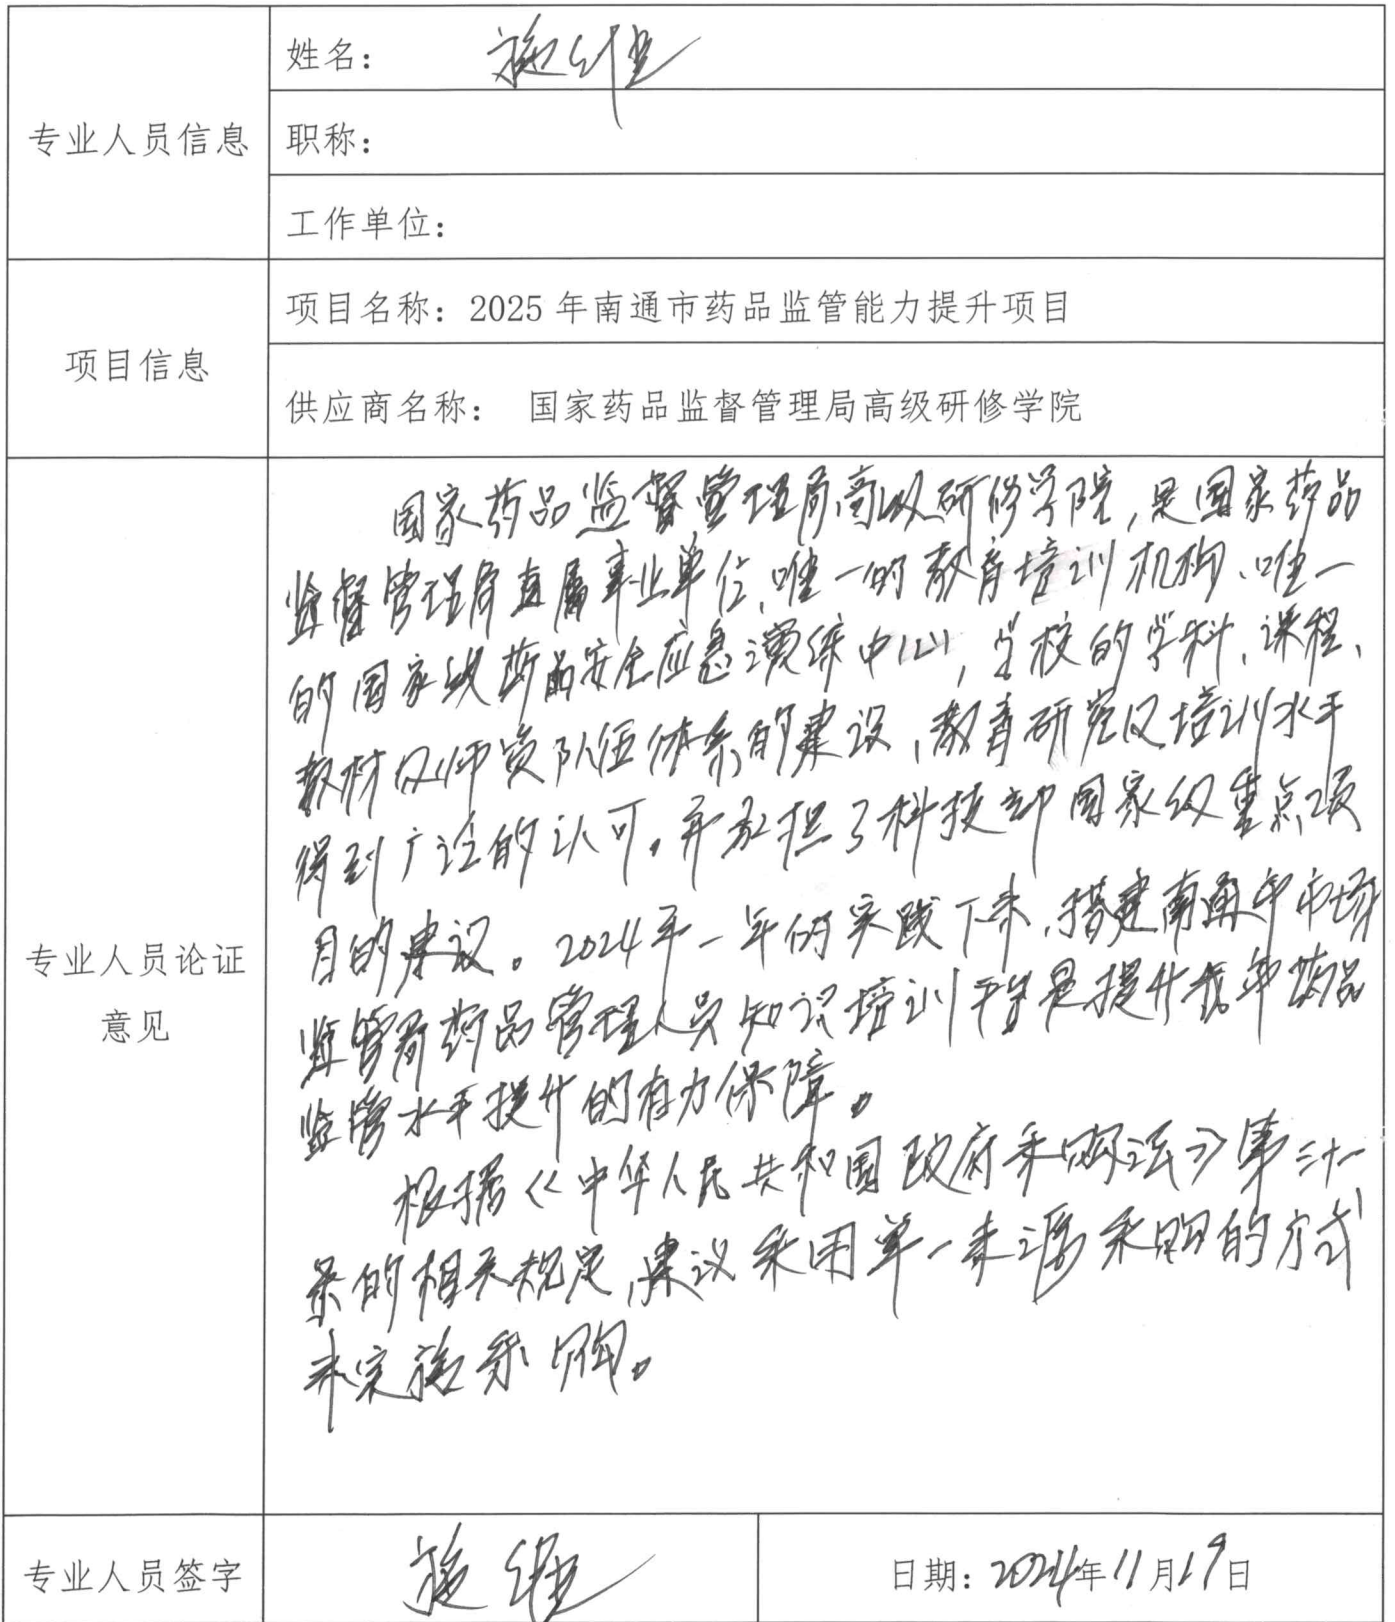 专业人员信息
姓名：施
职称：
工作单位：
项目信息
项目名称：2025 年南通市药品监管能力提升项目
供应商名称： 国家药品监督管理局高级研修学院
专业人员论证
意见
国家药品监督管理局高级研修学院，是国家药品
监督管理局直属事业单位、唯一的教育培训机构、唯一
的国家级药品安全应急演练中心，学校的学科、课程、
教材及师资队伍体系的建设，教育研究及培训水平
得到广泛的认可。并承担了科技部国家级重点项
目的建设。2024年一年的实践下来，搭建南通市市场
监管局药品管理人员知识培训平台是提升我市药品
监管水平提升的有力保障。
根据《中华人民共和国政府采购法》第三十一
条的相关规定，建议采用单一来源采购的方式
来实施采购。
专业人员签字
施
日期：2024年11月19日